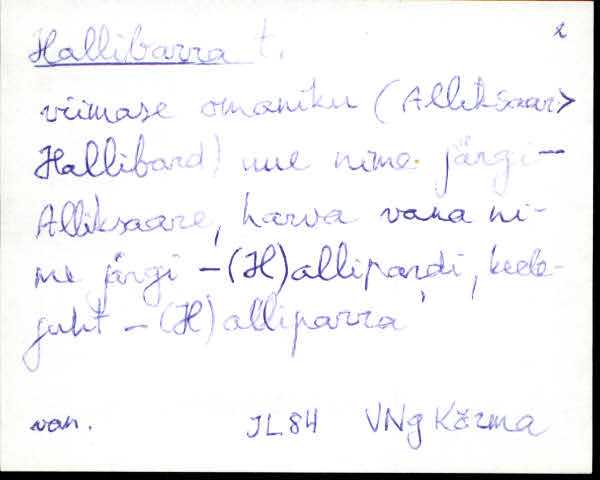 2
Hallibarra t.
viimase omaniku (Alliksaar>
Hallibard) uue nime järgi –
Alliksaare, harva vana ni-
me järgi – (H)allipardi, keele-
juht – (H)alliparra
van. JL84 VNg Kõrma